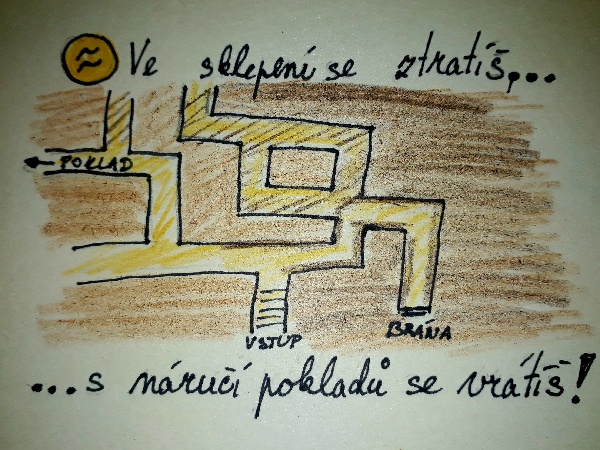 ≈ Ve sklepení se ztratíš,...
← POKLAD
VSTUP
BRÁNA
...s náručí pokladů se vrátíš!